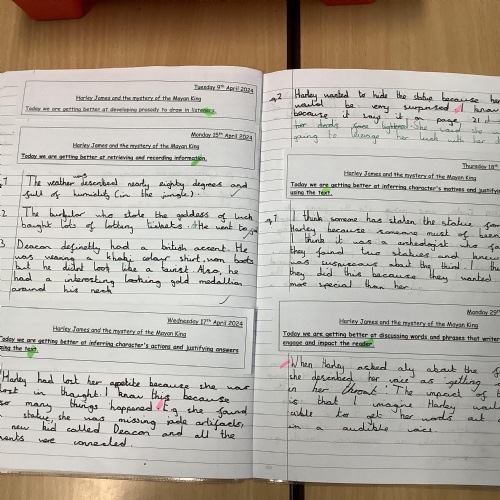 Tuesday 9th April 2024
Harley James and the mystery of the Mayan King
Today we are getting better at developing prosody to draw in listeners.
Monday 15th April 2024
Harley James and the mystery of the Mayan King
Today we are getting better at retrieving and recording information.
The weather was described nearly eighty degrees and
full of humidity (in the jungle).
2 The burbular who stole the goddess of luck
baught lots of lottery tickets. He went to
3 Deacon definetly had a british accent. He
was wearing a khaki colour shirt, worn boots
but he didnt look like a tourist. Also, he
had a interesting looking gold medallion
around his neck.
Wednesday 17th April 2024
Harley James and the mystery of the Mayan King
Today we are getting better at inferring character's actions and justifying answers
using the text.
Harley had lost her appetite because she was
lost in thought. I know this because
so many things happened E.g. she found
statue, she was missing jade artifacts,
new kid called Deacon and all the
events were connected.
2 Harley wanted to hide the statue because her
would be very surprised I know
because it say it on page 21
She said she
going to change her luck with her
Thursday 18th
Harley James and the mystery of the Mayan King
Today we are getting better at inferring character's motives and justifying
using the text.
I think someone has stolen the statue from
Harley because someone must of been
I think it was a archeologist who
they found two statues and knew
was suspicous about the third. I
they did this because they wanted
more special than her.
Monday 29
Harley James and the mystery of the Mayan King
Today we are getting better at discussing words and phrases that writer
engage and impact the reader.
When Harley asked about the
she described her voice as getting
in her throat. The impact of
is that I imagine Harley
able to get her words out
in a audible voice.